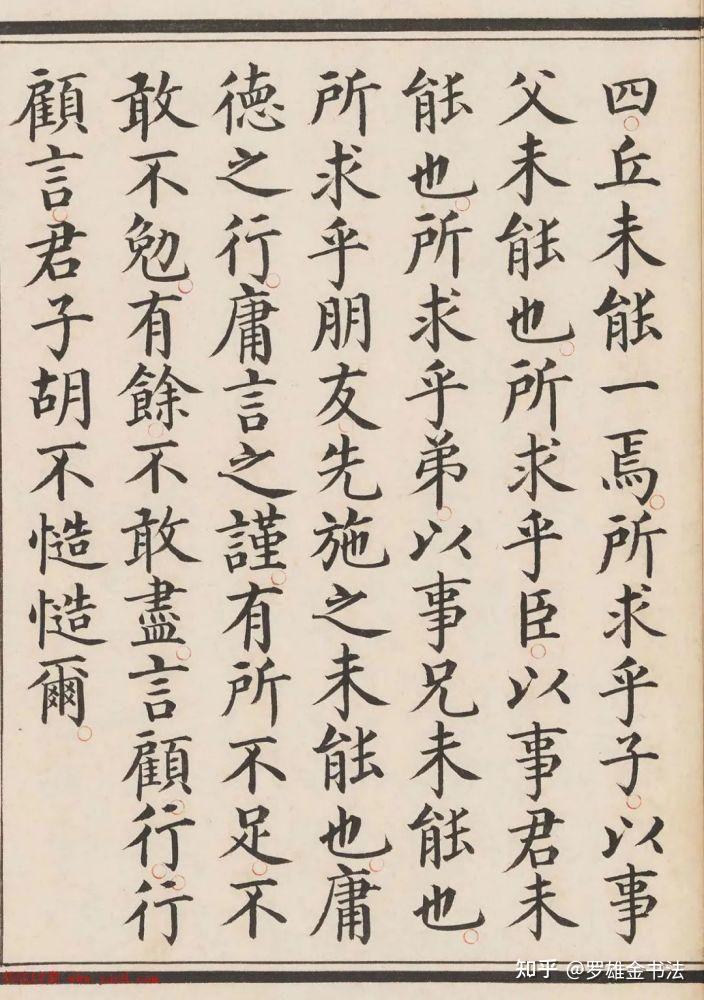 四丘未能一焉所求乎子以事
父未能也所求乎臣以事君未
能也所求乎弟以事兄未能也
所求乎朋友先施之未能也庸
德之行庸言之謹有所不足不
敢不勉有餘不敢盡言顧行行
顧言君子胡不慥慥爾
知乎 @罗雄金书法